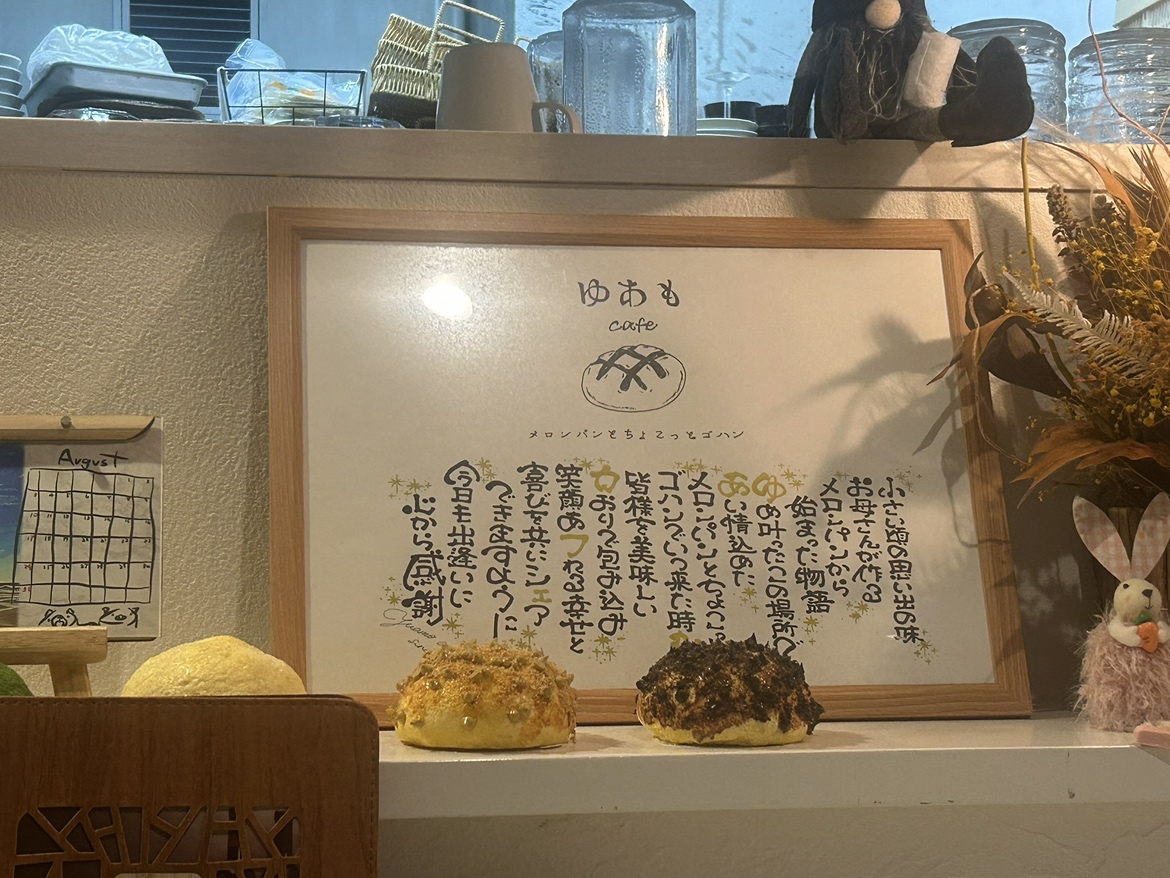 ゆあも
cafe
メロンパンとちょこっとゴハン
小さい頃の思い出の味
お母さんが作る
メロンパンから
始まった物語
ゆめ叶ったこの場所で
あい情込めた
メロンパンとちょこっと
ゴハンでいつ来た時も
皆様を美味しい
カおりで包み込み
笑顔あフれる幸せと
喜びを共にシェア
できますように
今日も出逢いに
心から感謝
August